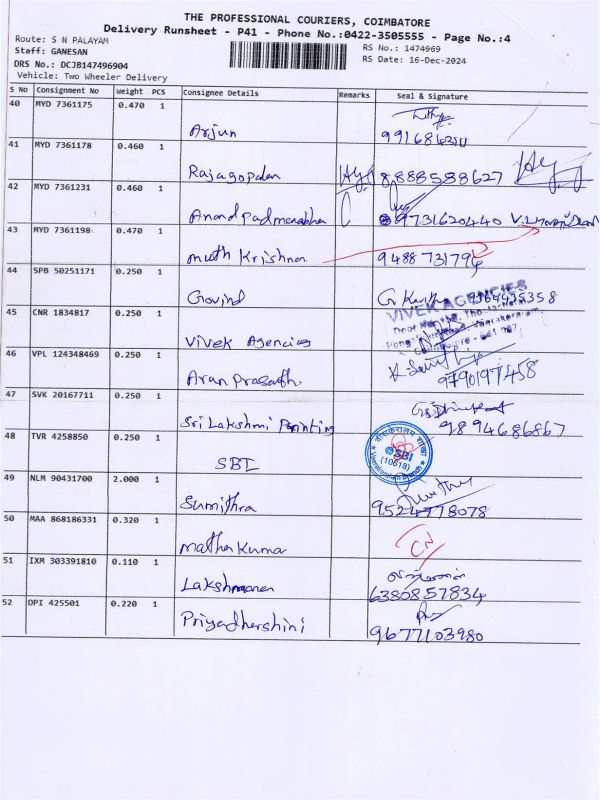 THE PROFESSIONAL COURIERS, COIMBATORE
Delivery Runsheet - P41 - Phone No.:0422-3505555 - Page No.:4
Route: S N PALAYAM
RS No.: 1474969
Staff: GANESAN
RS Date: 16-Dec-2024
DRS No.: DCJB147496904
Vehicle: Two Wheeler Delivery
S No Consignment No Weight PCS Consignee Details Remarks Seal & Signature
40 MYD 7361175 0.470 1
Arjun
41 MYD 7361178 0.460 1
Rajagopalan 8888588627
42 MYD 7361231 0.460 1
Anandpadmanabha 9731620440
43 MYD 7361198 0.460 1
muth Krishnan 9488731796
44 SPB 50251171 0.250 1
Govind
45 CNR 1834817 0.250 1
VIVEK AGENCIES
Vivek Agencies
46 VPL 124348469 0.250 1
Arun Prasath 9790197458
47 SVK 20167711 0.250 1
Sri Lakshmi Printing 9894686867
48 TVR 4258850 0.250 1
SBI
SBI
(10618)
49 NLM 90431700 2.000 1
Sumithra 9524778078
50 MAA 868186331 0.320 1
CN
Mathan Kumar
51 IXM 303391810 0.110 1
Lakshmanan 6380857834
52 DPI 425501 0.220 1
Priyadharshini 9677103980